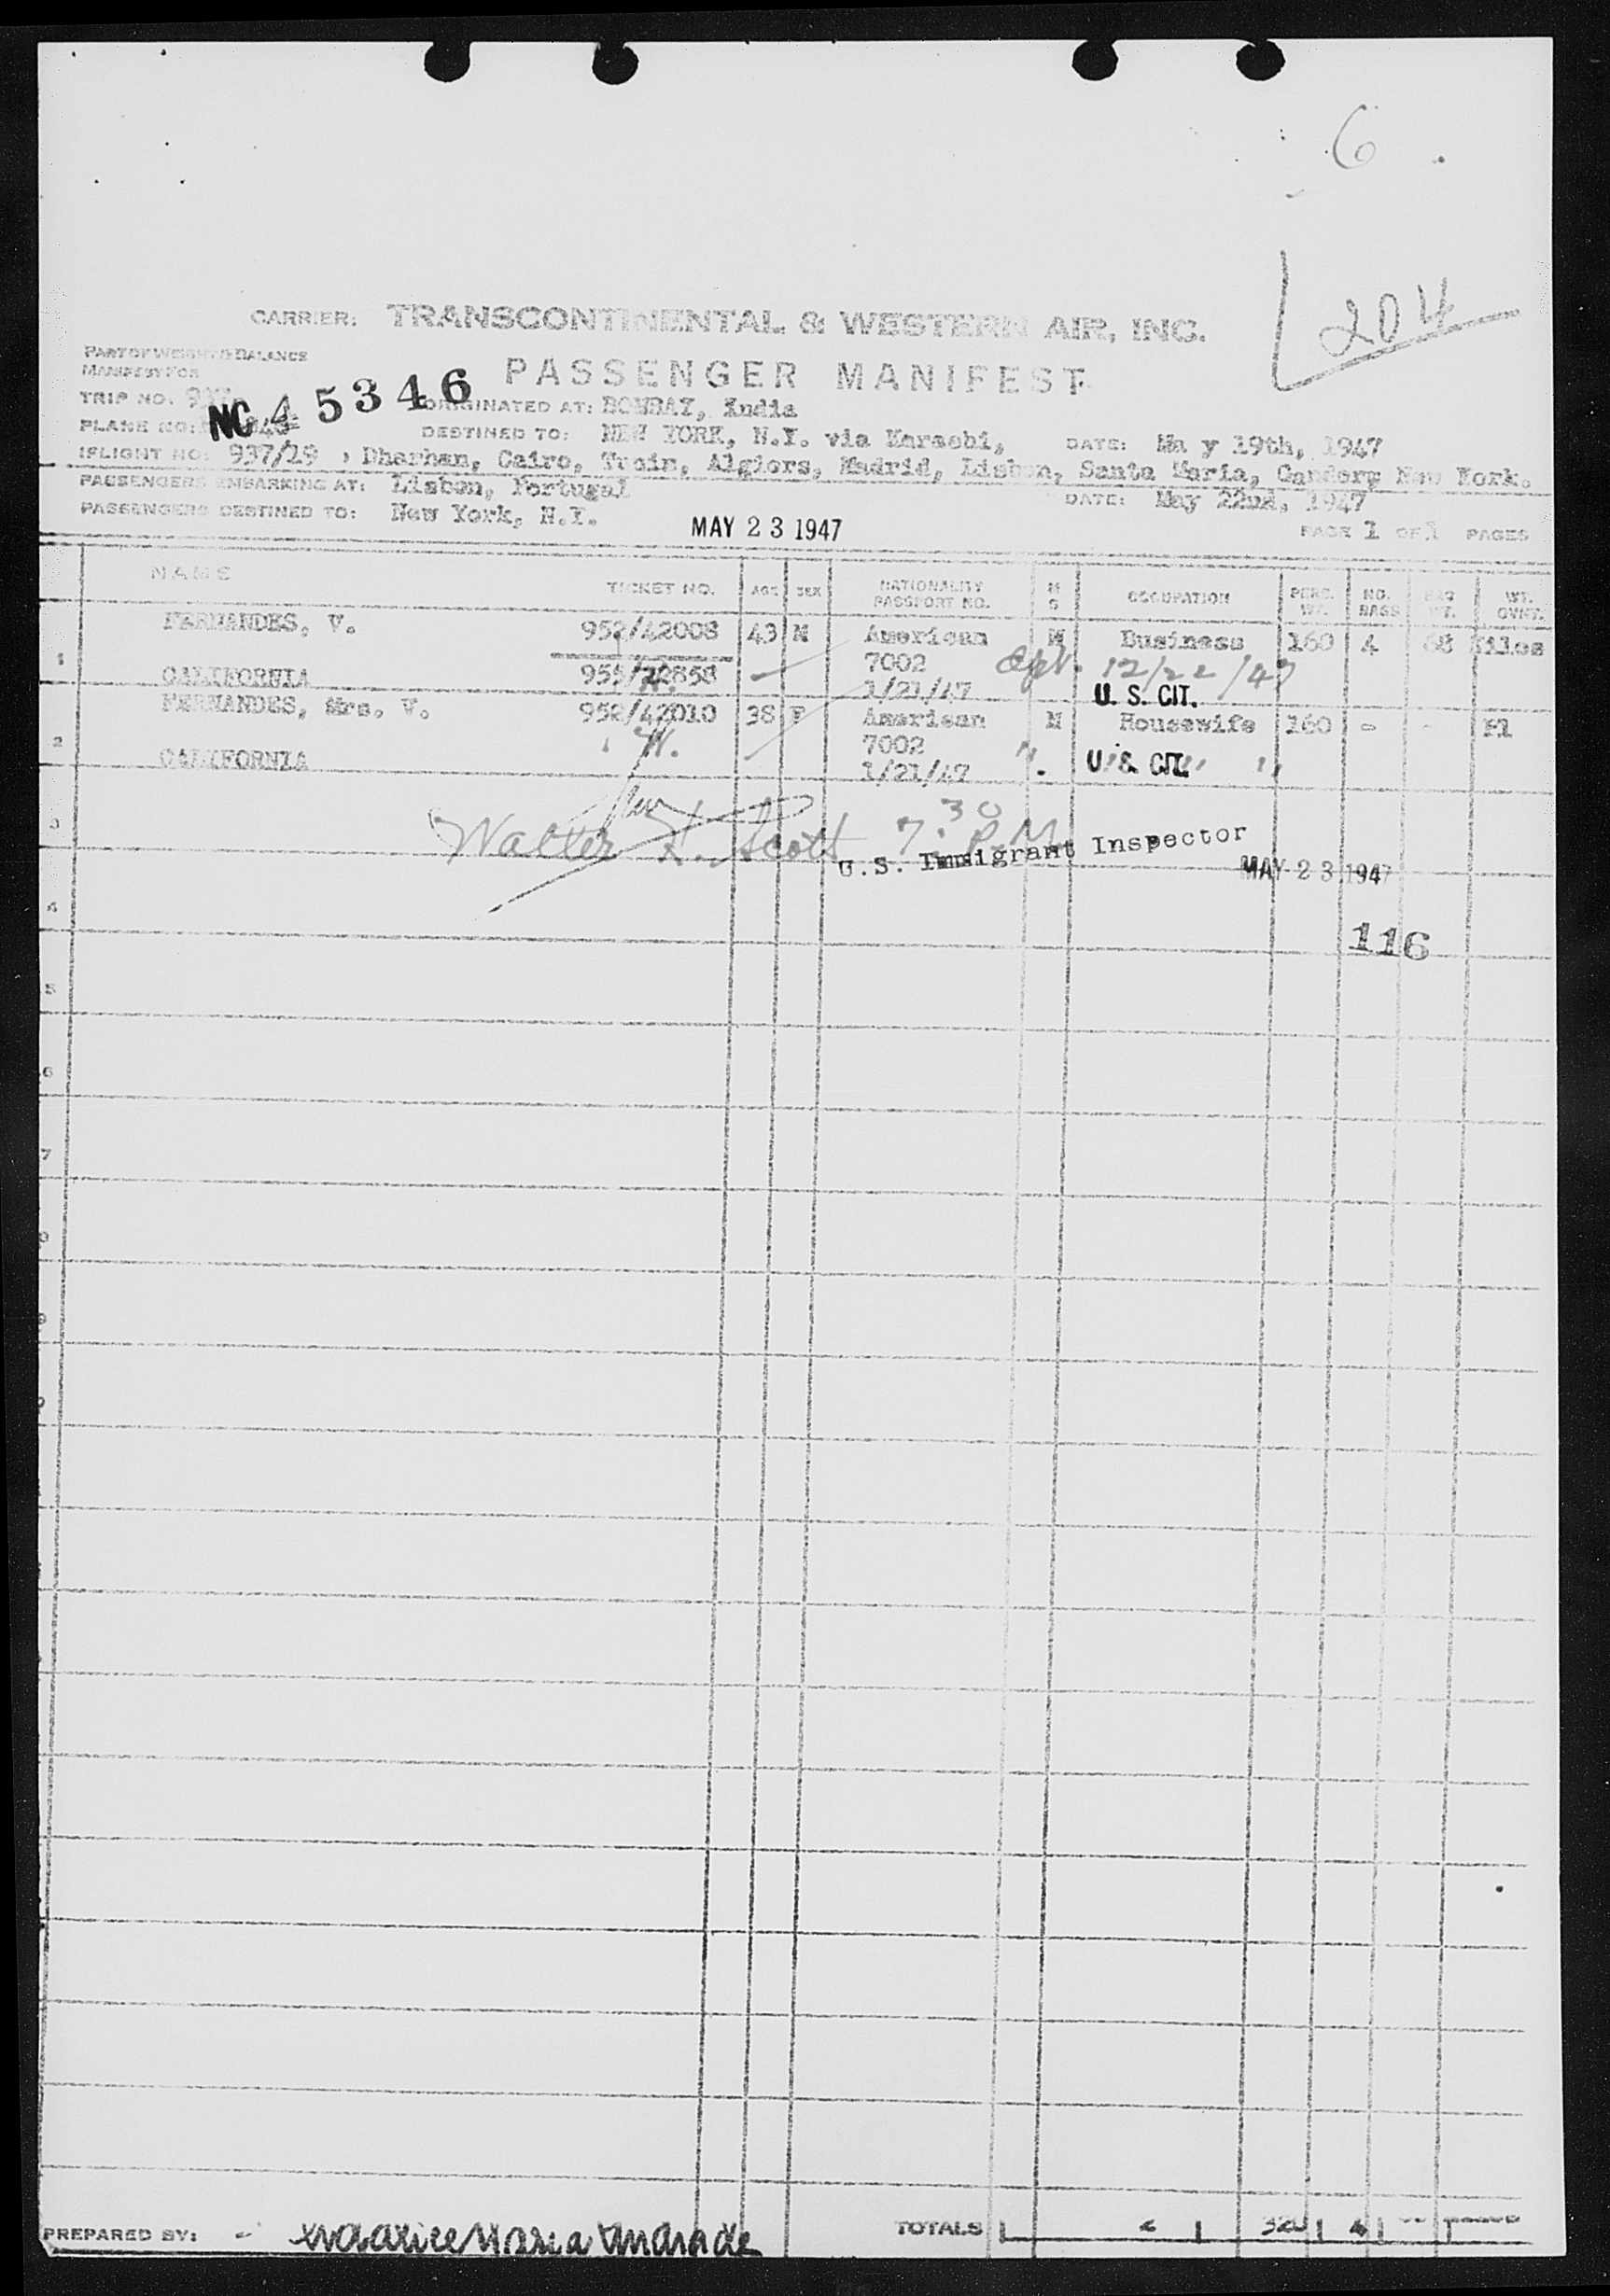 6
204
CARRIER: TRANSCONTINENTAL & WESTERN AIR, INC.
PART OF WEIGHT & BALANCE
MANIFEST FOR
PASSENGER MANIFEST
TRIP NO. 937
NC 45346
ORIGINATED AT: BOMBAY, India
PLANE NO:
DESTINED TO: NEW YORK, N.Y. via Karachi, DATE: Ma y 19th, 1947
FLIGHT NO: 937/19 , Dharhan, Cairo, Algiers, Madrid, Lisbon, Santa Maria, Gander, New York.
PASSENGERS EMBARKING AT: Lisbon, Portugal DATE: May 22nd, 1947
PASSENGERS DESTINED TO: New York, N.Y.
MAY 23 1947
PAGE 1 OF 1 PAGES
NAME TICKET NO. AGE SEX NATIONALITY PASSPORT NO. M S OCCUPATION PERS. WT. NO. BAGS BAG WT. WT. OVNT.
FERNANDES, V. 952/42008 43 M American M Business 160 4 68 Kilos
1 CALIFORNIA 7002 12/22/47
1/21/47 U. S. CIT.
FERNANDES, Mrs. V. 952/42010 38 F American M Housewife 160 - -
2 CALIFORNIA 7002 " U.S. CIT. "
1/21/47
3 Walter Scott 7:30 P.M.
U.S. Immigrant Inspector
MAY 23 1947
4
116
5
6
7
PREPARED BY: Maria Andrade TOTALS 2 320 4